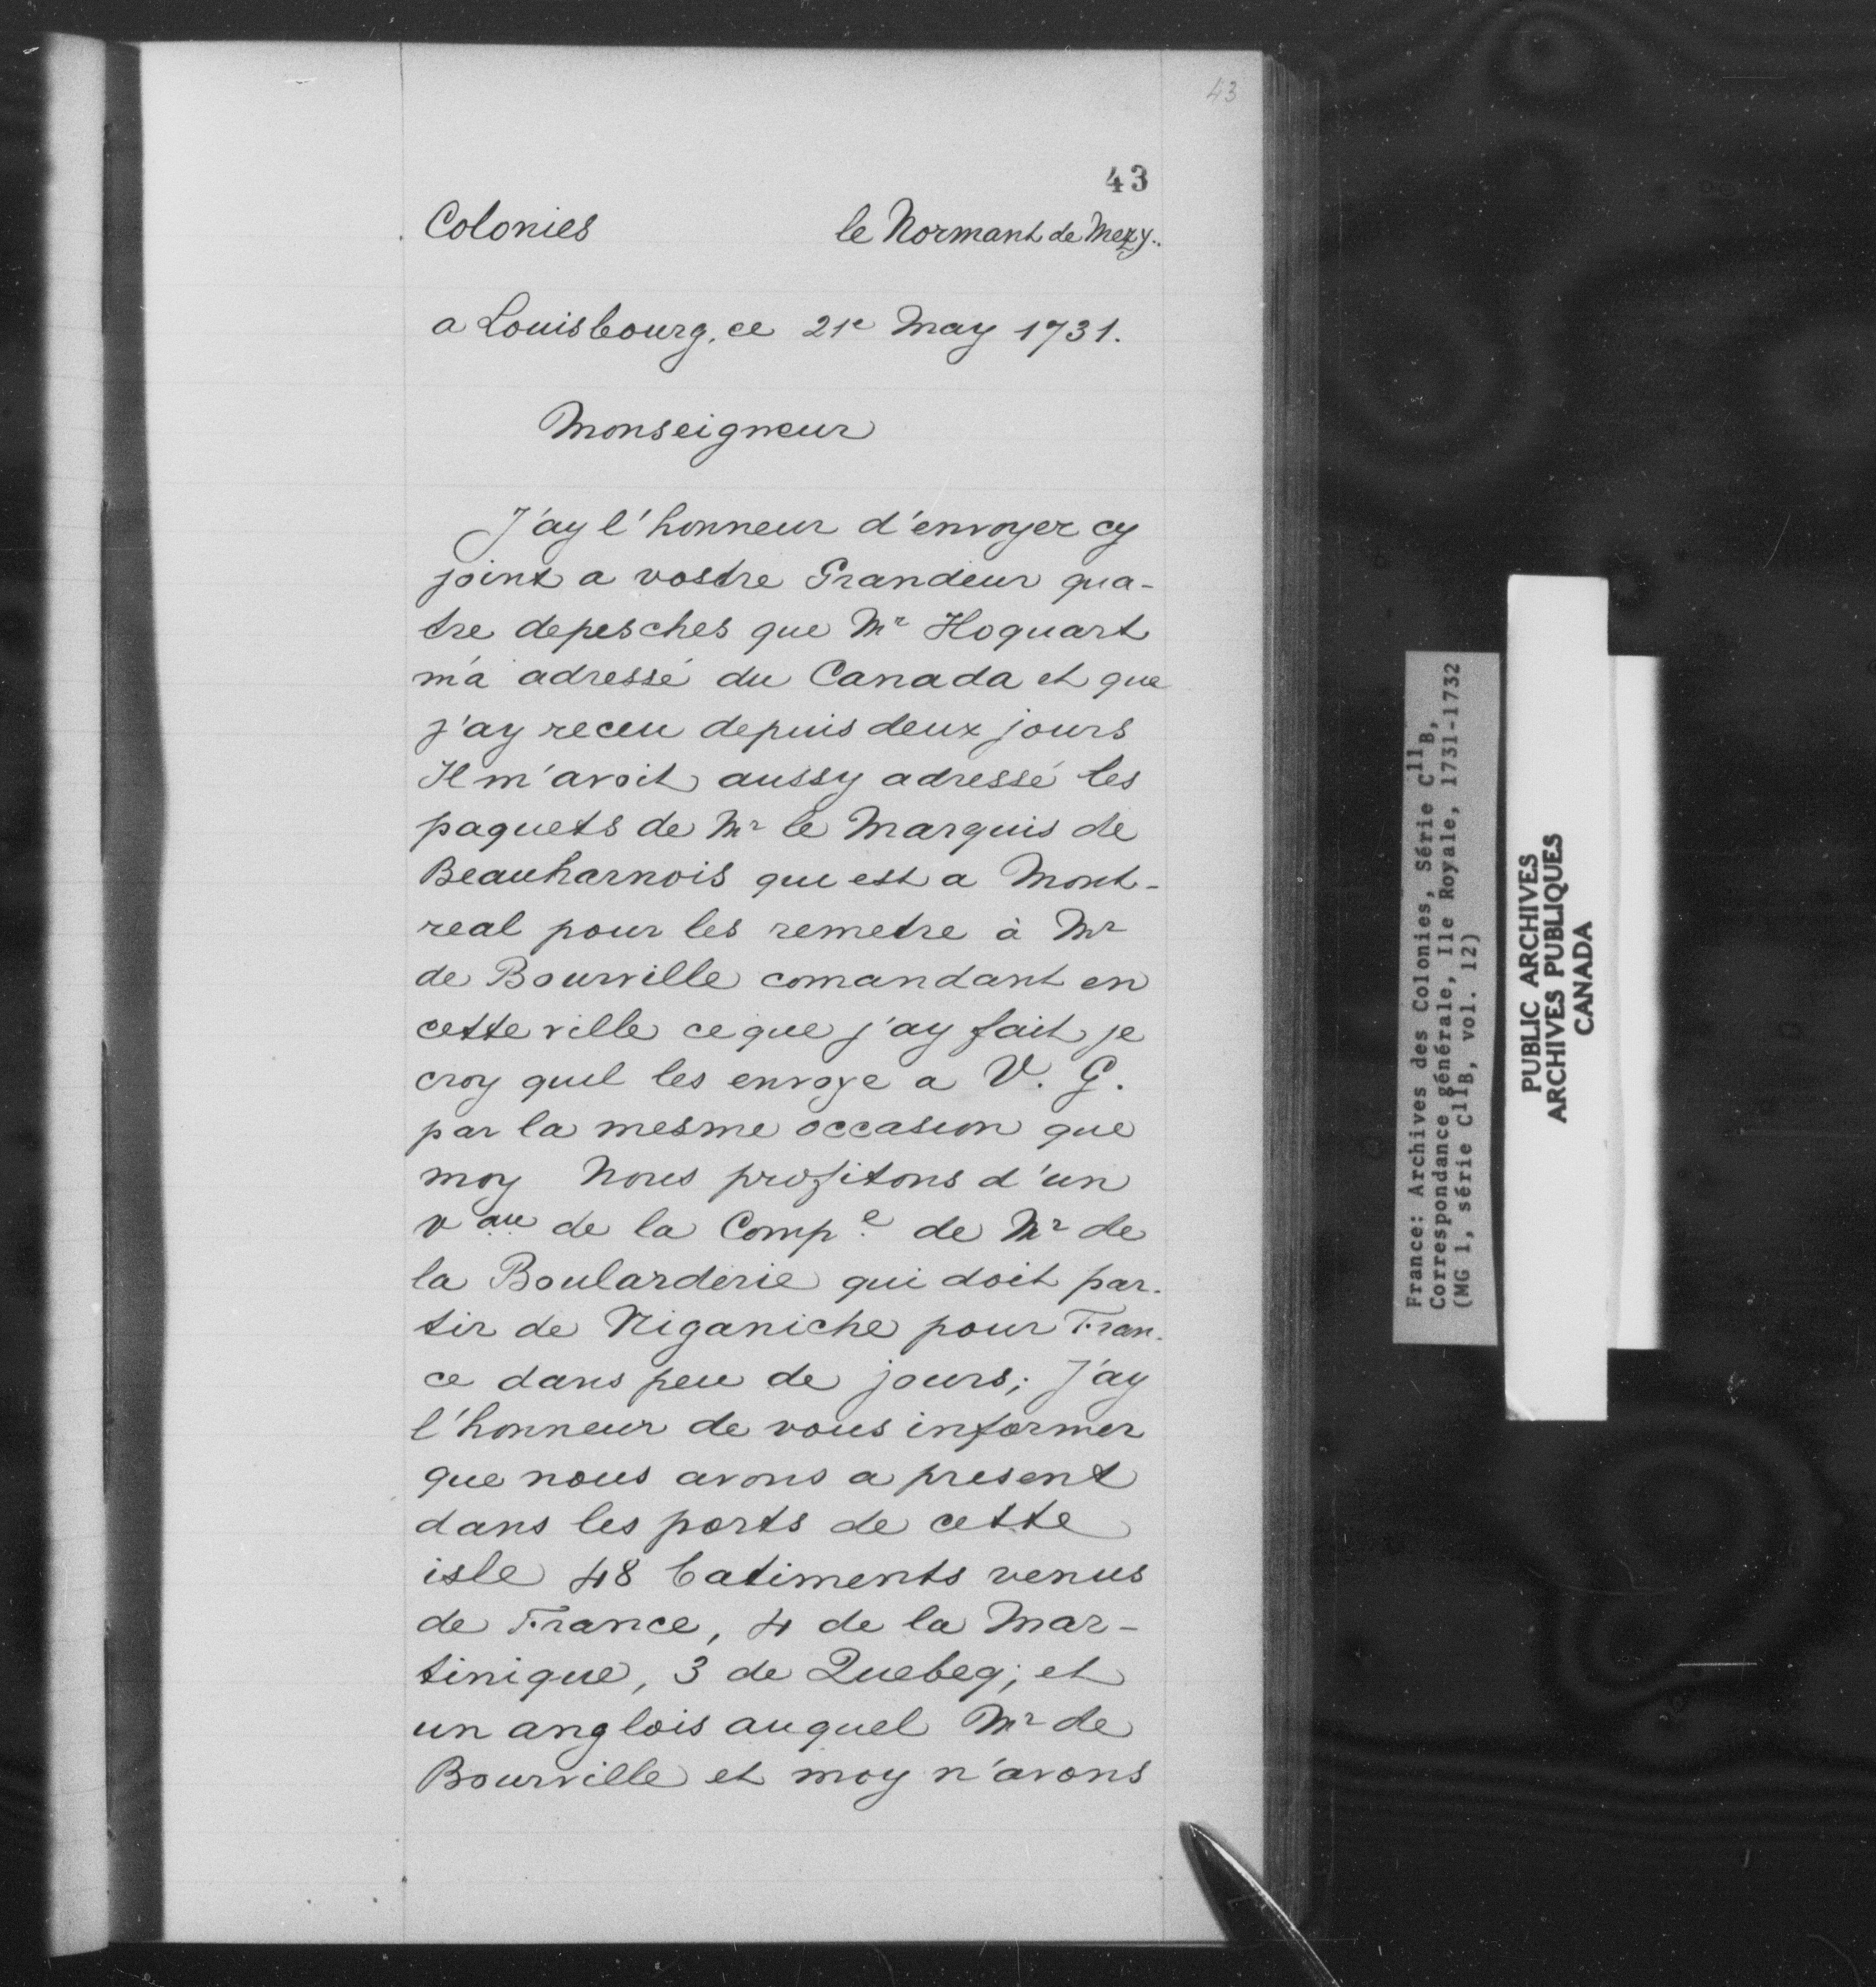 43
43
Colonies le Normant de Mezy.
a Louisbourg, ce 21e May 1731.
Monseigneur
J'ay l'honneur d'envoyer cy
joint a vostre Grandeur qua-
tre depesches que Mr Hoquart
m'a adressé du Canada et que
j'ay receu depuis deux jours
Il m'avoit aussy adressé les
paquets de Mr le Marquis de
Beauharnois qui est a Mont-
real pour les remetre à Mr
de Bourville comandant en
cette ville ce que j'ay fait je
croy quil les envoye a V. G.
par la mesme occasion que
moy Nous profitons d'un
vau de la Compe de Mr de
la Boularderie qui doit par-
tir de Niganiche pour Fran-
ce dans peu de jours; J'ay
l'honneur de vous informer
que nous avons a present
dans les ports de cette
isle 48 batiments venus
de France, 4 de la Mar-
tinique, 3 de Quebeq; et
un anglois auquel Mr de
Bourville et moy n'avons
France: Archives des Colonies, Série C11B,
Correspondance générale, Ile Royale, 1731-1732
(MG 1, série C11B, vol. 12)
PUBLIC ARCHIVES
ARCHIVES PUBLIQUES
CANADA